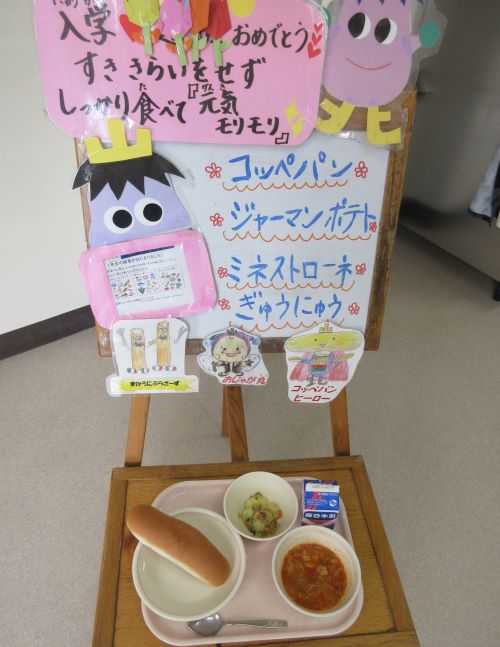 入学 おめでとう
すききらいをせず
しっかり食べて『元気
モリモリ』
コッペパン
ジャーマンポテト
ミネストローネ
ぎゅうにゅう
まかろにぶらざーず
おじゃが丸
コッペパン
ヒーロー